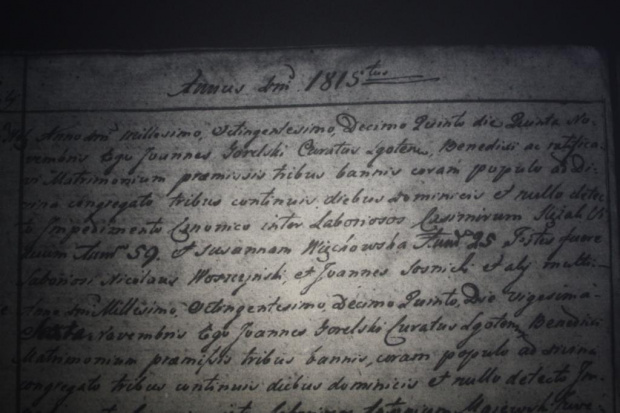 Annus dni 1815tus
Anno dni Millesimo, Octingentesimo, Decimo Quinto die Quinta No-
vembris Ego Joannes Gorelski Curatus Lgoten, Benedixi ac ratifica-
vi Matrimonium premissis tribus bannis coram populo ad Di-
vina congregato tribus continuis diebus dominicis et nullo detec-
to Impedimento Canonico inter Laboriosos Casimirum Vi-
duum Ann 59. et Susannam 25 Testes fuere
Laboriosi Nicolaus Woszczynski, et Joannes Sosnicki et alij multi
Anno dni Millesimo, Octingentesimo, Decimo Quinto, Die Vigesima
Novembris Ego Joannes Gorelski Curatus Lgoten, Benedixi
Matrimonium premissis tribus bannis, coram populo ad divina
congregato tribus continuis diebus dominicis et nullo detecto Im-